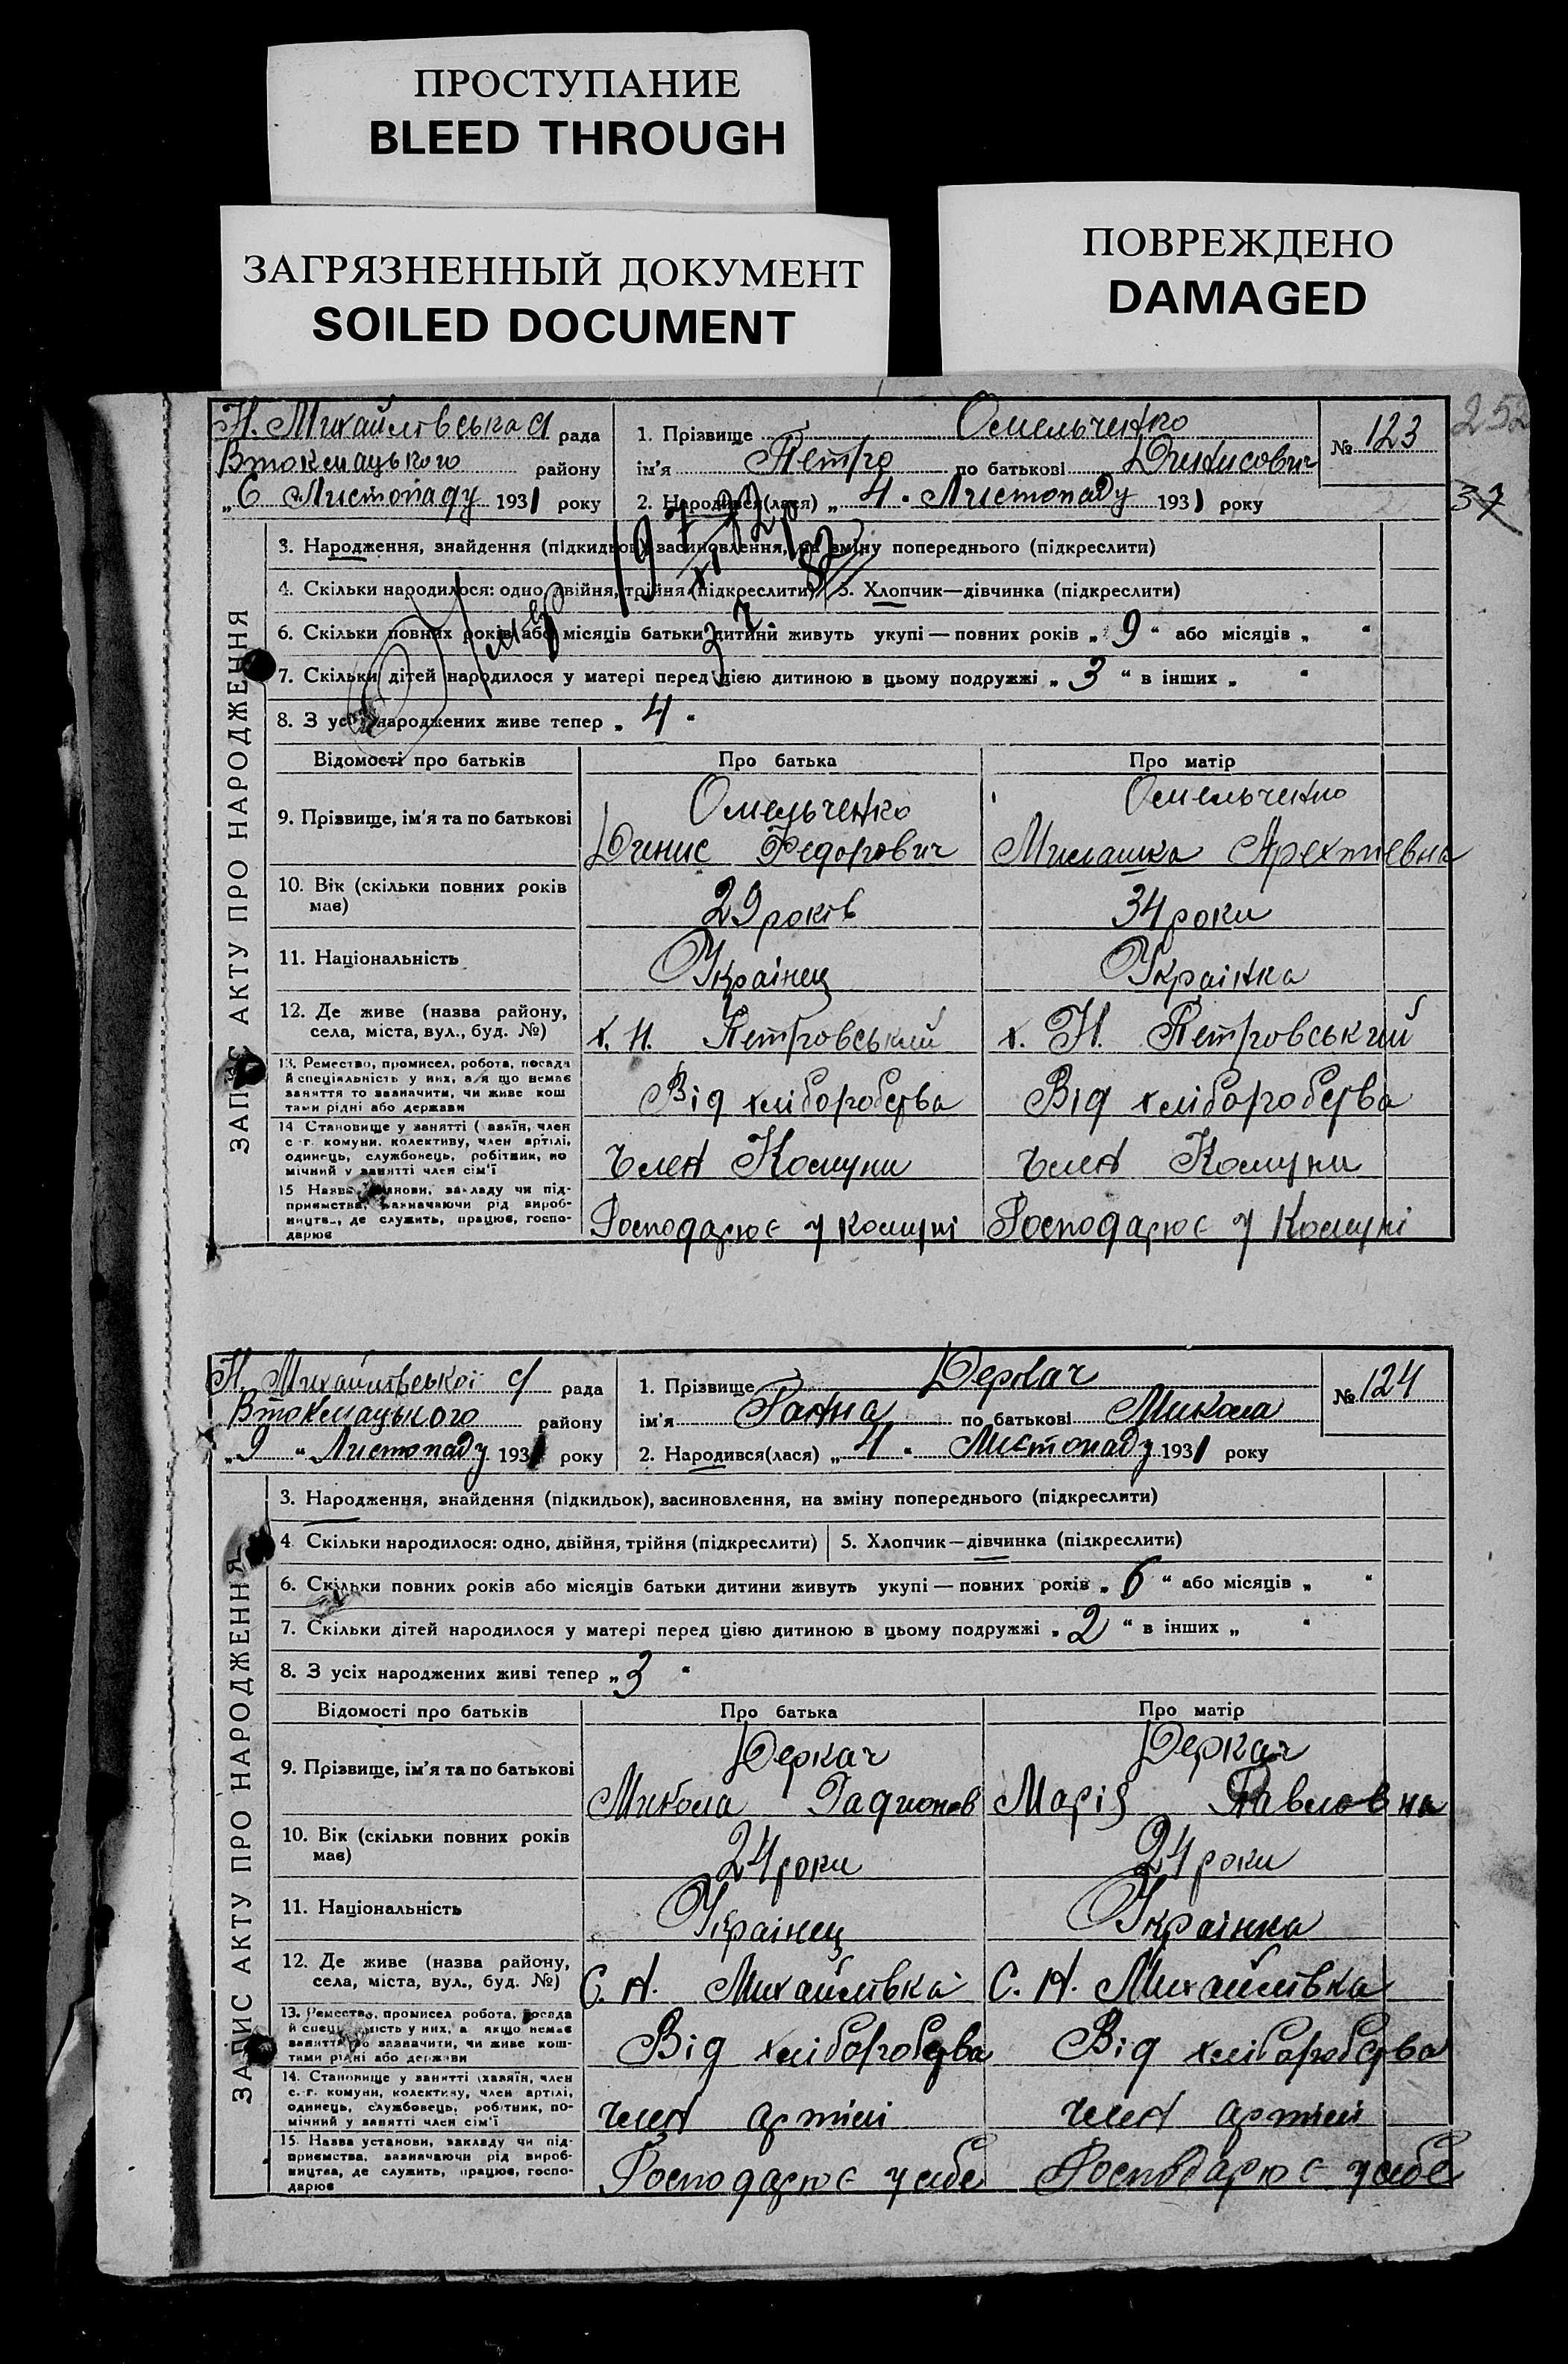 ПРОСТУПАНИЕ
BLEED THROUGH
ЗАГРЯЗНЕННЫЙ ДОКУМЕНТ
SOILED DOCUMENT
ПОВРЕЖДЕНО
DAMAGED
252
37
ЗАПИС АКТУ ПРО НАРОДЖЕННЯ
Н. Михайлівська с/ рада
Втокмацького району
„6 Листопаду 1931 року
1. Прізвище Омельченко
ім'я Петро по батькові Динисович
№ 123
2. Народився(лася) „4" Листопаду 1931 року
3. Народження, знайдення (підкидьок), васиновлення, на зміну попереднього (підкреслити)
4. Скільки народилося: одно, двійня, трійня (підкреслити) 5. Хлопчик—дівчинка (підкреслити)
6. Скільки повних років або місяців батьки дитини живуть укупі — повних років „9" або місяців „ "
7. Скільки дітей народилося у матері перед цією дитиною в цьому подружжі „3" в інших „ "
8. З усіх народжених живе тепер „4"
Відомості про батьків Про батька Про матір
9. Прізвище, ім'я та по батькові
Омельченко Омельченко
Динис Федорович Милашка
10. Вік (скільки повних років має)
29 років 34 роки
11. Національність
Украінец Украінка
12. Де живе (назва району, села, міста, вул., буд. №)
х. Н. Петровський х. Н. Петровський
13. Ремество, промисел, робота, посада
й спеціяльність у них, а
заняття то зазначити, чи живе кош
тами рідні або держави
Від хліборобства Від хліборобства
14 Становище у занятті ( азяїн, член
с-г. комуни, колективу, член артілі,
одинець, службовець, робітник, по
мічний у занятті член сім'ї
Член Комуни Член Комуни
15 Назва установи, закладу чи під-
приємства, зазначаючи рід вироб-
ництва, де служить, працює, госпо-
дарює
Господарює у комуні Господарює у Комуні
ЗАПИС АКТУ ПРО НАРОДЖЕННЯ
Н. Михайлівськоі с/ рада
Втокмацького району
„9 " Листопаду 1931 року
1. Прізвище Деркач
ім'я Ганна по батькові Микола
№ 124
2. Народився(лася) „4" Листопаду 1931 року
3. Народження, знайдення (підкидьок), васиновлення, на зміну попереднього (підкреслити)
4. Скільки народилося: одно, двійня, трійня (підкреслити) 5. Хлопчик—дівчинка (підкреслити)
6. Скільки повних років або місяців батьки дитини живуть укупі — повних років „6" або місяців „ "
7. Скільки дітей народилося у матері перед цією дитиною в цьому подружжі „2" в інших „ "
8. З усіх народжених живі тепер „3"
Відомості про батьків Про батька Про матір
9. Прізвище, ім'я та по батькові
Деркач Деркач
Микола Радионов Марія Павловна
10. Вік (скільки повних років має)
24 роки 24 роки
11. Національність
Украінец Украінка
12. Де живе (назва району, села, міста, вул., буд. №)
С. Н. Михайлівка С. Н. Михайлівка
13. Ремество, промисел робота, посада
й спеціяльність у них, а якщо немає
заняття то зазначити, чи живе кош-
тами рідні або держави
Від хліборобства Від хліборобства
14. Становище у занятті (хазяїн, член
с.-г. комуни, колективу, член артілі,
одинець, службовець, робітник, по-
мічний у занятті член сім'ї
член артілі член артілі
15. Назва установи, закладу чи під-
приємства, зазначаючи рід вироб-
ництва, де служить, працює, госпо-
дарює
Господарює у себе Господарює у себе